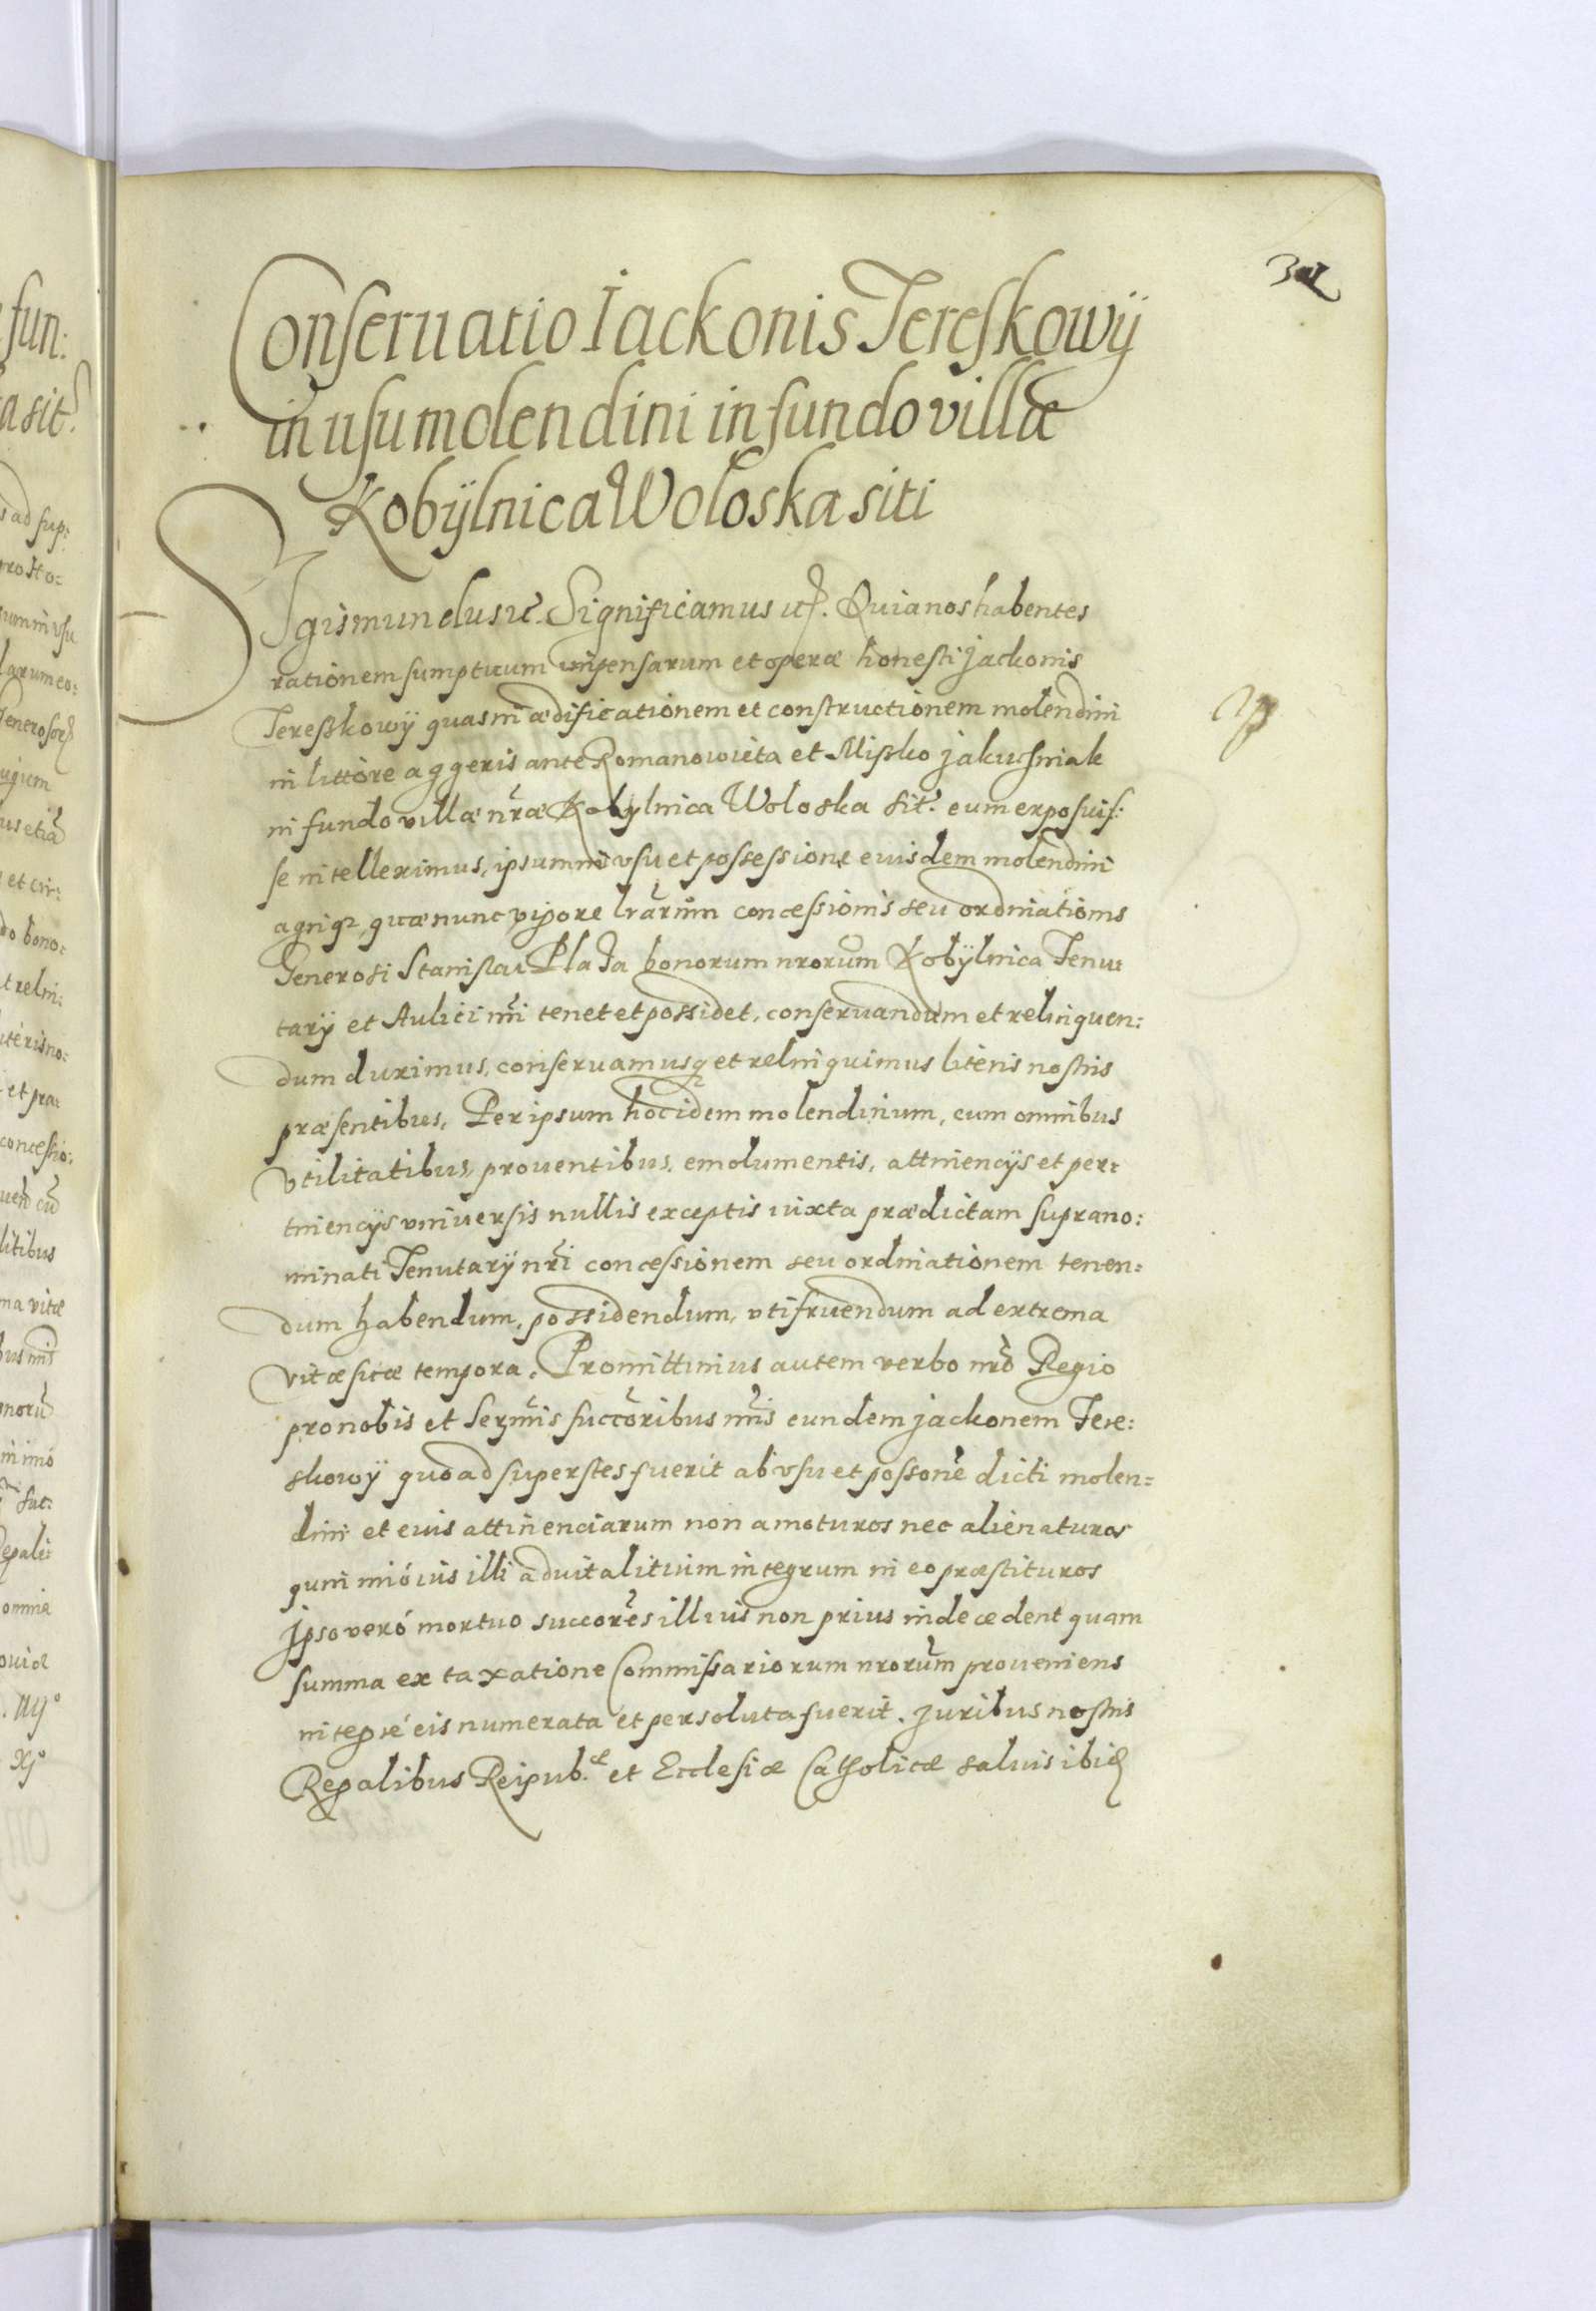 Conseruatio Iackonis Tereskowÿ
in usu molendini in fundo villæ
Kobÿlnica Woloska siti
Sigismundus &c. Significamus &c. Quia nos habentes
rationem sumptuum impensarum et operæ honesti Jackonis
Teresskowÿ quas in ædificationem et constructionem molendini
in littore aggeris ante Romanowieta et Missko jakusniak
in fundo villæ nr̃æ Kobylnica Woloska sit. eum exposuis:
se intelleximus, ipsum in vsu et possessione euisdem molendini
agriq₃, quæ nunc vigore lr̃arum concessionis seu ordinationis
Generosi Stanislai Plaza bonorum nrorum Kobÿlnica Tenu:
tarÿ et Aulici nr̃i tenet et possidet, conseruandum et relinquen:
dum duximus, conseruamusq₃ et relinquimus literis nostris
præsentibus, Per ipsum hoc idem molendinum, cum omnibus
vtilitatibus, prouentibus, emolumentis, attinencÿs et per:
tinencÿs vniuersis nullis exceptis iuxta prædictam suprano:
minati Tenutarÿ nr̃i concessionem seu ordinationem tenen:
dum habendum, possidendum, vtifruendum ad extrema
vitæ suæ tempora. Promittimus autem verbo nr̃o Regio
pro nobis et Ser̃mis succoribus nr̃is eundem jackonem Tere:
skowÿ quoad superstes fuerit ab vsu et possone dicti molen=
dini et euis attinenciarum non amoturos nec alienaturos
quin imó ius illi aduitalitium integrum in eo præstituros
Ipso veró mortuo succores illius non prius inde cedent quam
summa ex taxatione Commissariorum nrorum proueniens
integré eis numerata et persoluta fuerit. Juribus nostris
Regalibus Reipub.æ et Ecclesiæ Catholicæ saluis ibid